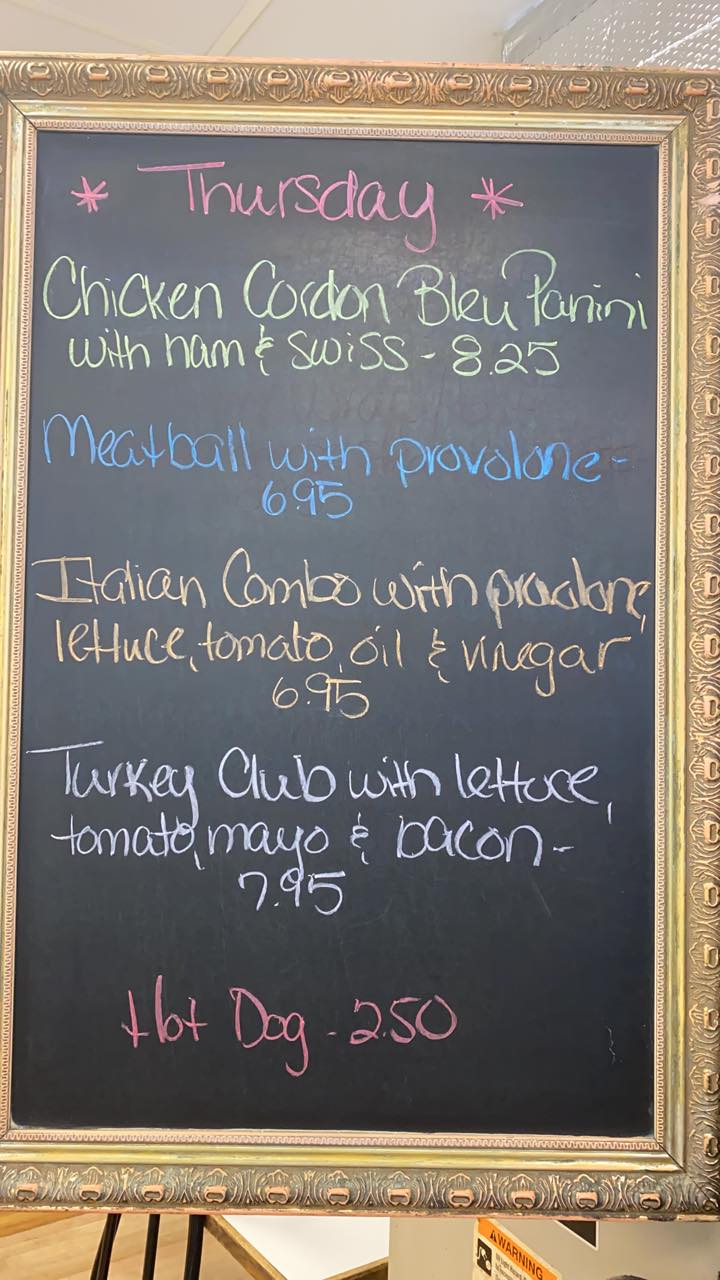 * Thursday *
Chicken Cordon Bleu Panini
with ham & swiss - 8.25
Meatball with provolone -
6.95
Italian Combo with provolone,
lettuce, tomato, oil & vinegar
6.95
Turkey Club with lettuce,
tomato, mayo & bacon -
7.95
Hot Dog - 2.50
WARNING